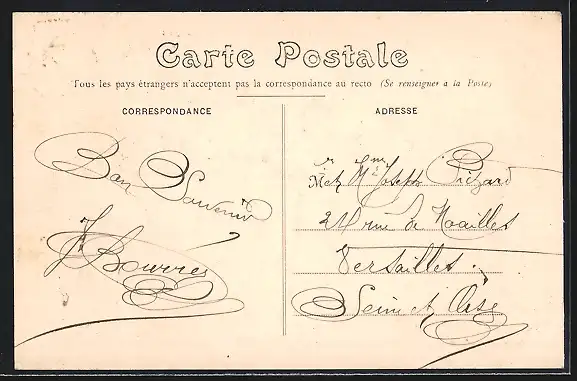 Carte Postale
Tous les pays étrangers n'acceptent pas la correspondance au recto (Se renseigner a la Poste)
CORRESPONDANCE
Bon Souvenir
ADRESSE
Mr et Mme Joseph
rue de Noailles
Versailles.
Seine et Oise